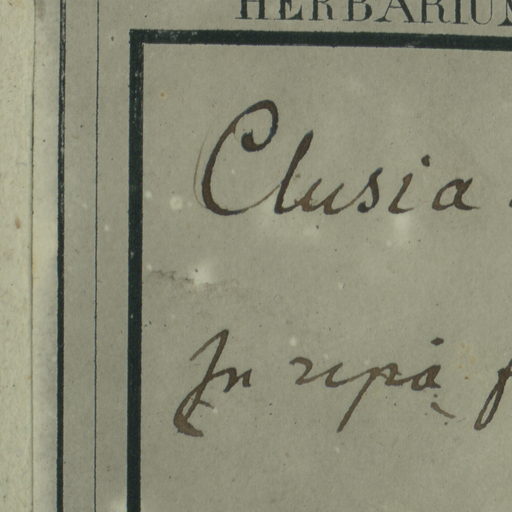 HERBARIUM
Clusia
In ripa